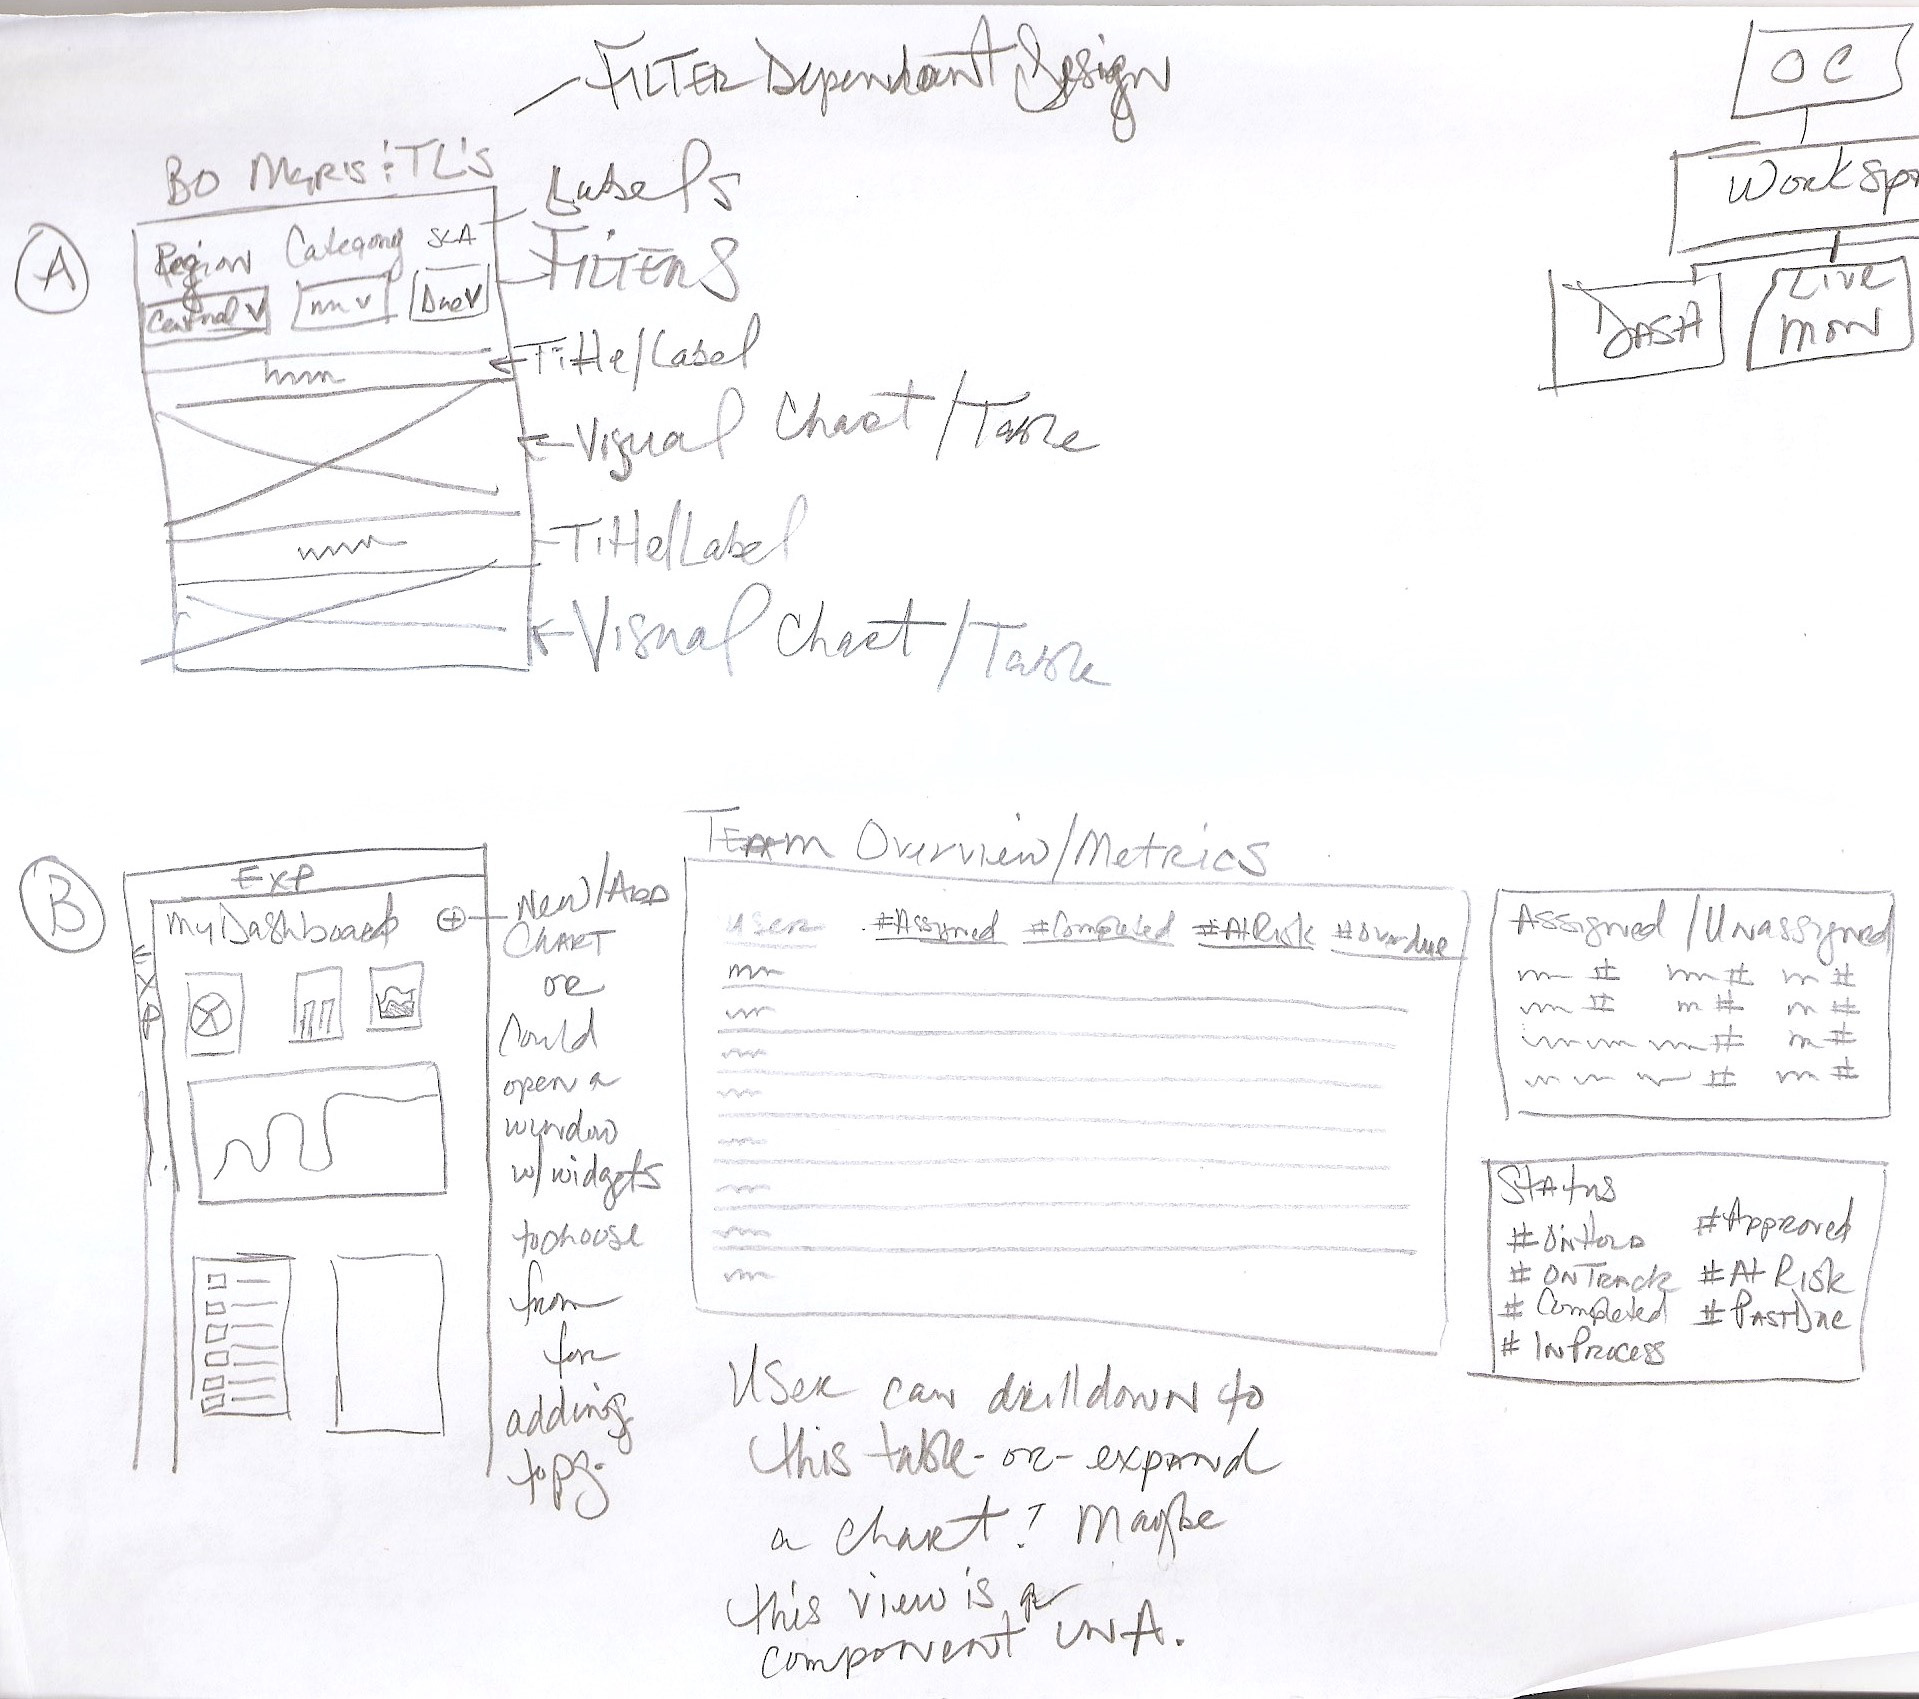 Filter Dependant Design
OC
Workspa
Dash
Live
Mon
BO Mgrs & TL's
A
Region Category SLA
Central Due
Labels
Filters
Title/Label
Visual Chart/Table
Title/Label
Visual Chart/Table
B
Exp
EXP
My Dashboard +
New/Add
Chart
or
Could
open a
window
w/ widgets
to choose
from
for
adding
to pg.
Team Overview/Metrics
User #Assigned #Completed #At Risk #Overdue
Assigned/Unassigned
# # #
# # #
# #
# #
Status
# On Hold
# On Track
# Completed
# In Process
# Approved
# At Risk
# Past Due
User can drilldown to
this table -or- expand
a chart? Maybe
this view is a
component in A.